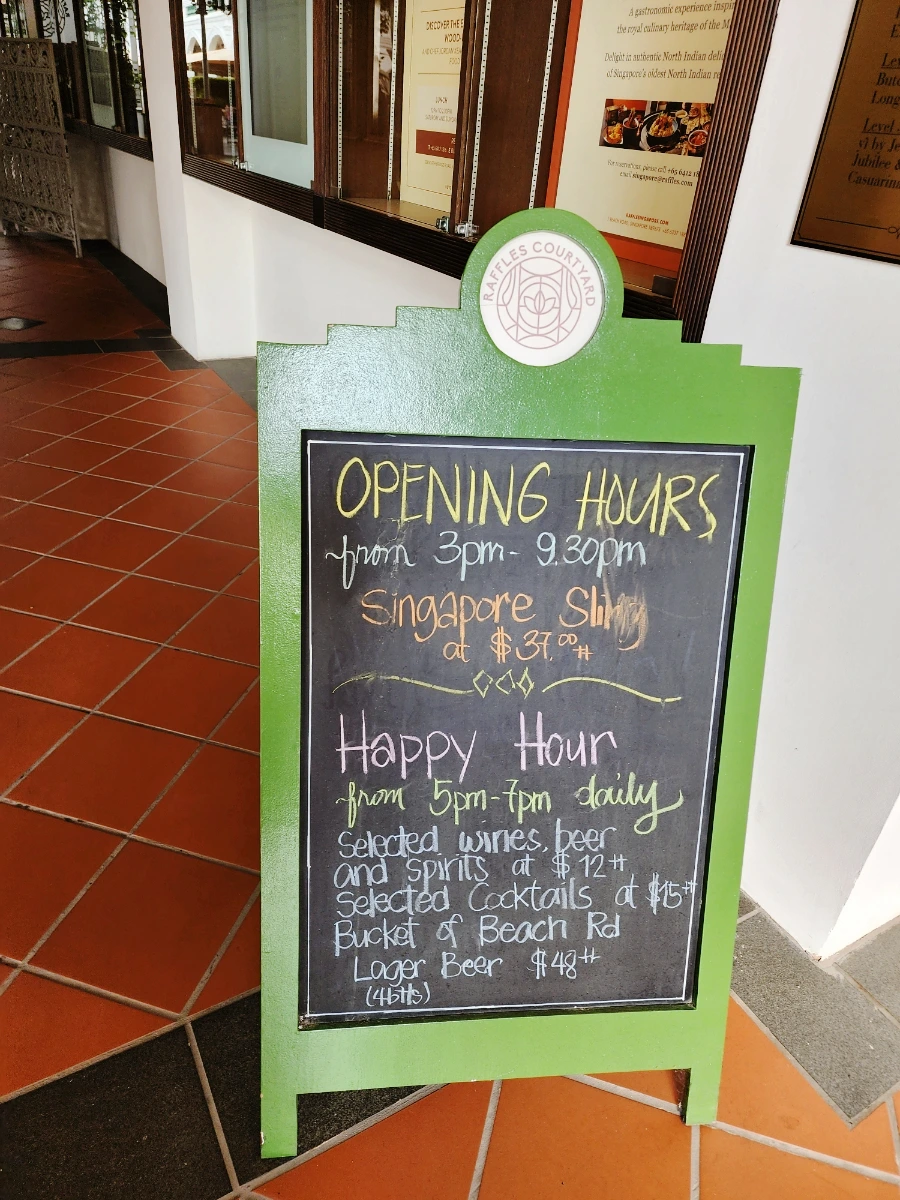 DISCOVER THE
WOOD
A gastronomic experience
the royal culinary heritage of the
Delight in authentic North Indian
of Singapore's oldest North Indian
For reservations, please call +65 6412
email singapore@raffles.com
Level
Long
Level
Jubilee &
RAFFLES COURTYARD
OPENING HOURS
from 3pm- 9.30pm
Singapore Sling
at $37.00++
Happy Hour
from 5pm-7pm daily
Selected wines, beer
and spirits at $12++
Selected Cocktails at $15++
Bucket of Beach Rd
Lager Beer $48++
(4btls)